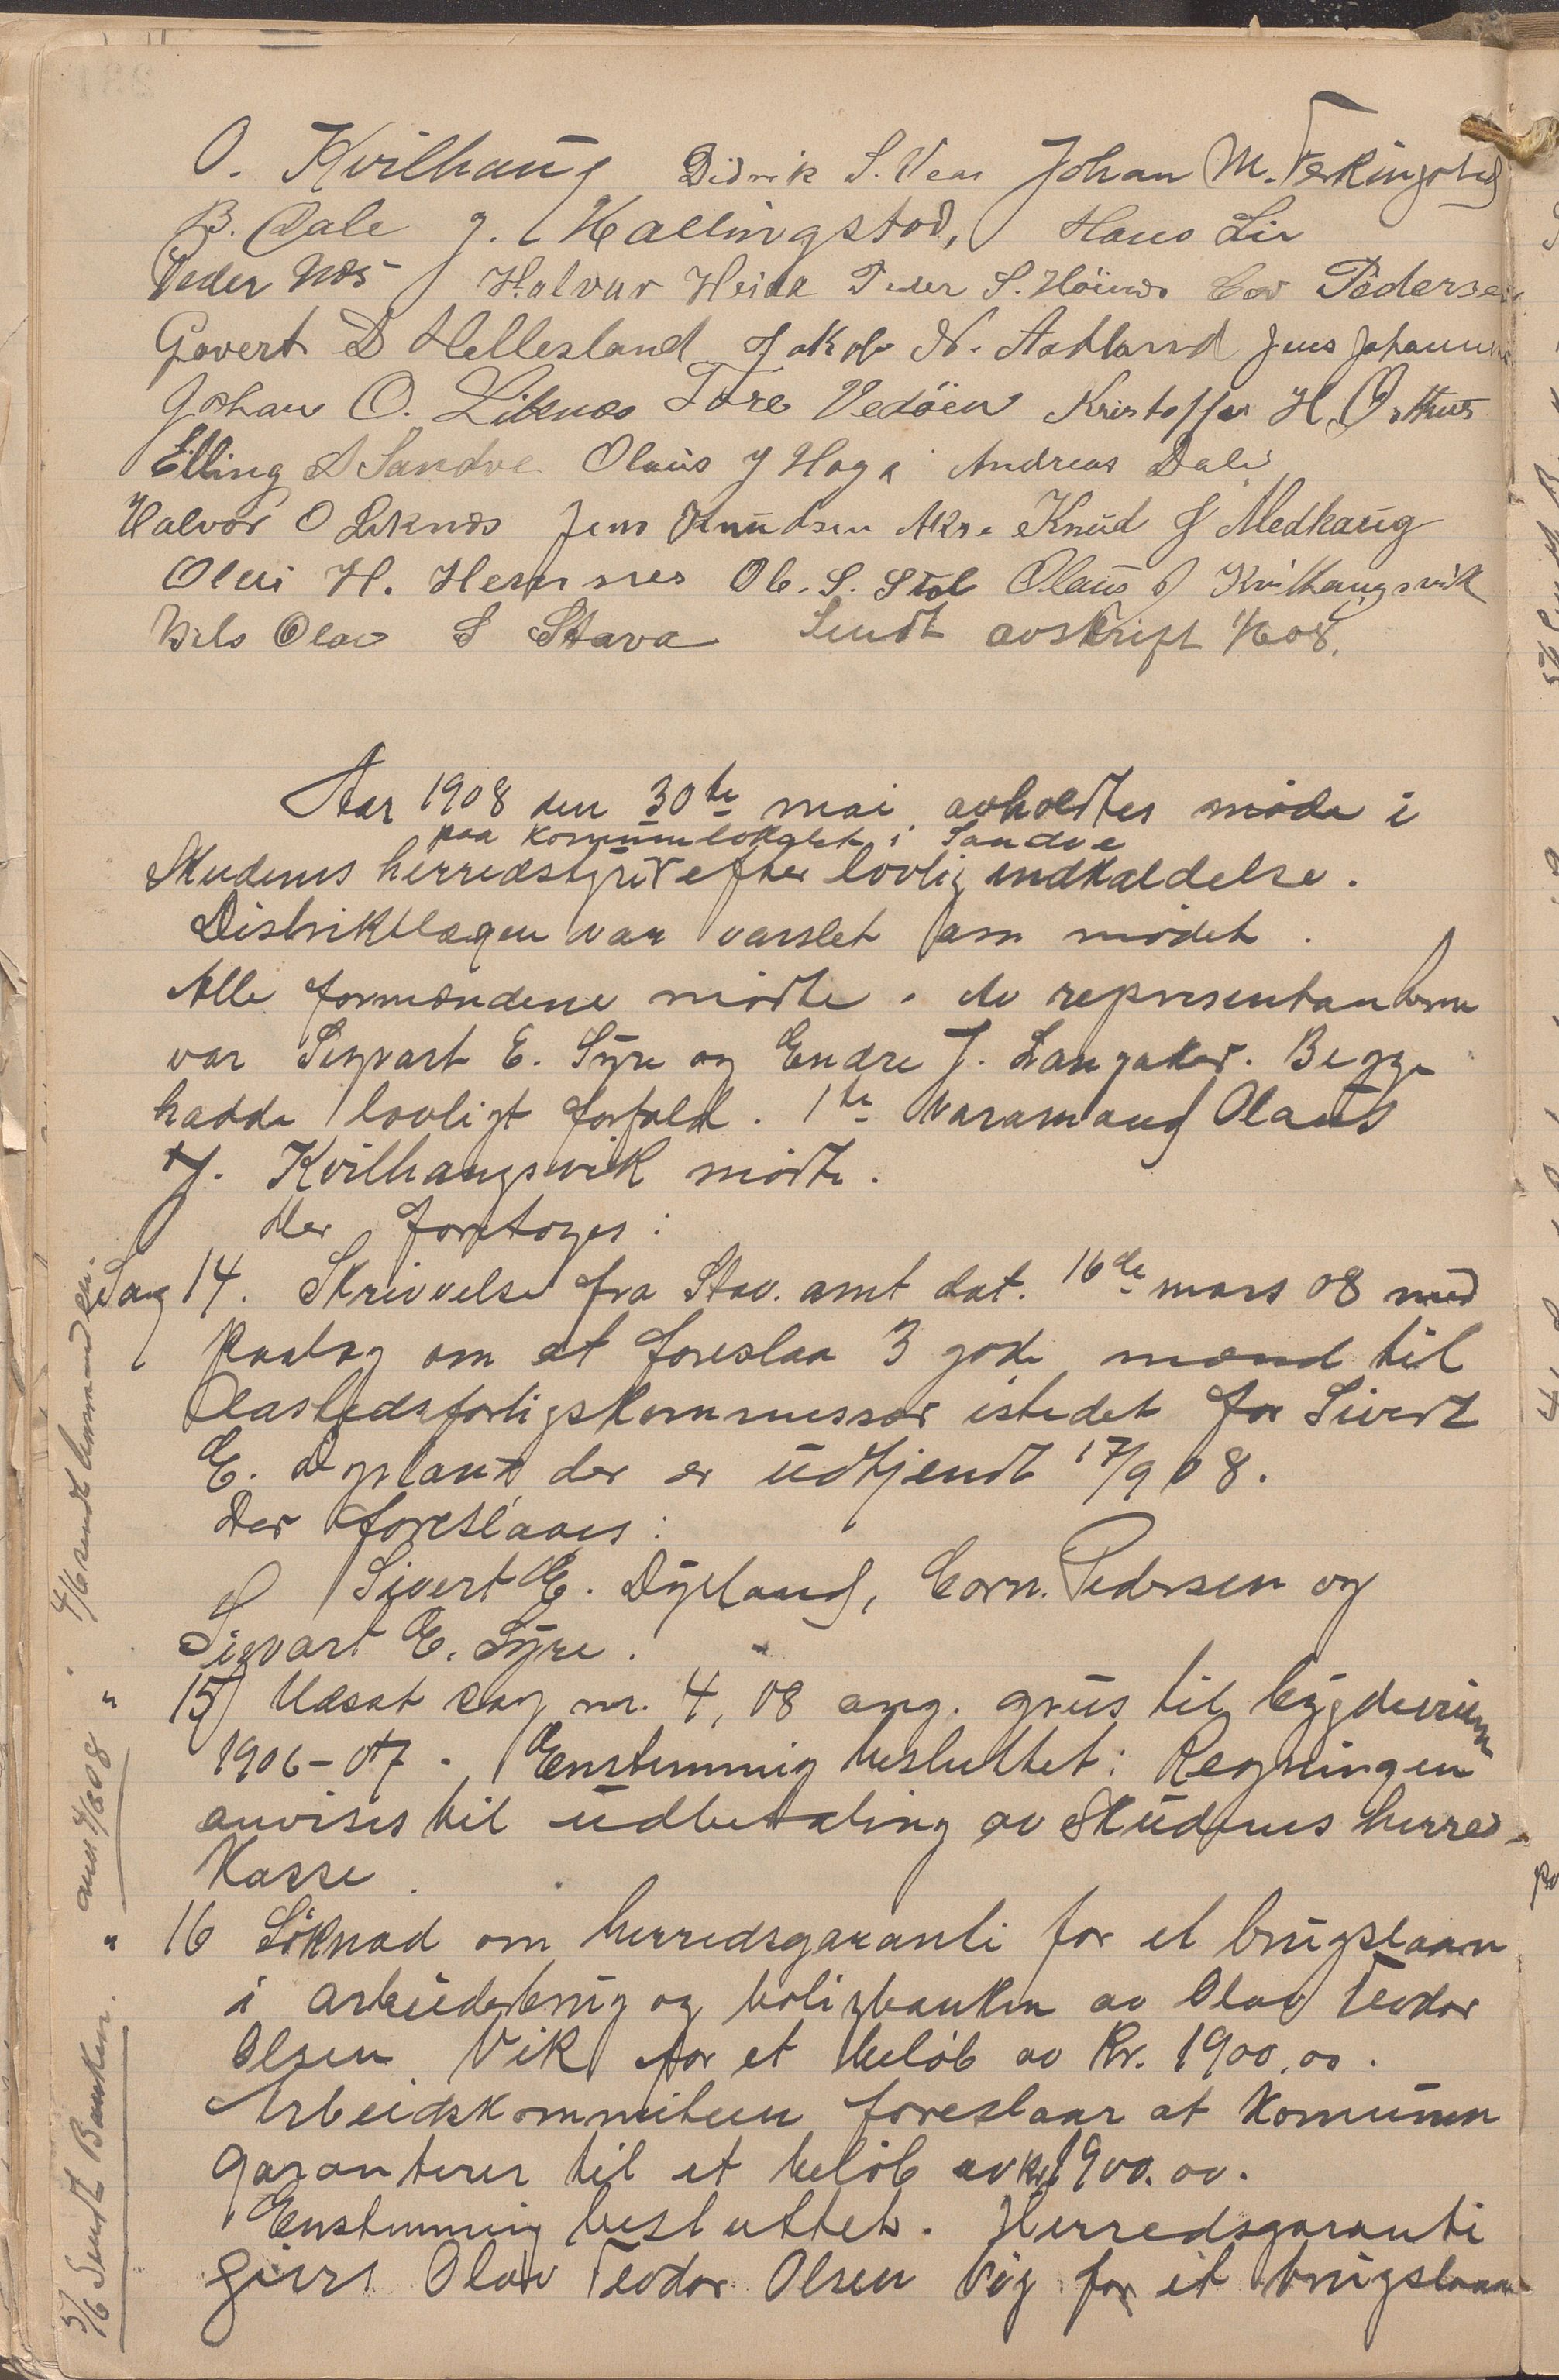 O. Kvilhaug Didrik S. Vea Johan M. Ferkingstad
B. Dale J. Hallingstad, Hans Lie
Peder Næs Halvar Heida Peder S. Höines Cor Pedersen
Govert D Hellesland Jakob N. Aadland Jens Johannes
Johan O. Liknæs Tore Vedöen Kristoffer H. Østhus
Elling A Sandve Olaus J Haga Andreas Dale
Halvor O Liknæs Jens Knudsen Akre Knud J Medhaug
Olai H. Hemnes Ole. S. Stol Olaus J Kvilhaugsvik
Nils Olav S Stava Sendt avskrift 1/6 08.
Aar 1908 den 30te mai avholdtes møde i
paa kommunelokalet i Sandve
Skudenes herredstyre efter lovlig indkaldelse.
Distriktlægen var varslet om mødet.
Alle formændene mødte. Av repræsentanterne
var Sigvart E. Syre og Endre J. Langaker. Begge
hadde lovligt forfald. 1te Varamand Olaus
J. Kvilhaugsvik mødte.
Der foretoges:
Sag 14. Skrivelse fra Stav. amt dat. 16de mars 08 med
paalag om at foreslaa 3 gode mænd til
forligskommissær istedet for Sivert
E. Dyrland der er udtjendt 17/9 08.
Der foreslaaes:
Sivert E. Dyrland, Corn. Pedersen og
Sigvart E. Syre.
15) Udsat sag nr. 4, 08 ang. grus til bygdeveiene
1906-07. Enstemmig besluttet: Regningen
anvises til udbetaling av Skudenes herreds
kasse.
16 Søknad om herredsgaranti for et brugslaan
i arbeiderbrug og boligbanken av Olav Teodor
Olsen Vik for et beløb av Kr. 1900,00.
Arbeidskommiteen foreslaar at Komunen
garanterer til et beløb av kr 1900.00.
Enstemmig besluttet. Herredsgaranti
gives Olav Teodor Olsen Vig for et brugslaan
4/6 sendt
" and 4/6 08 "
5/6 Sendt Banken.